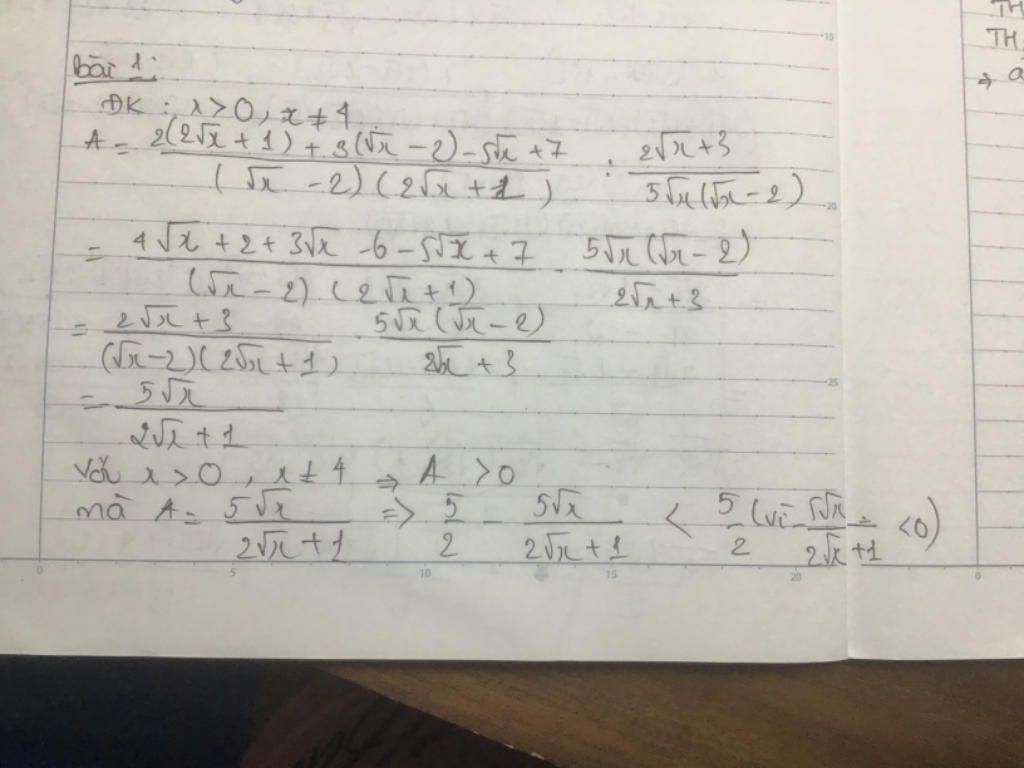 bài 1:
ĐK : x > 0, x ≠ 4
A = \frac{2(2√x + 1) + 3(√x - 2) - 5√x + 7}{(√x - 2)(2√x + 1)} : \frac{2√x + 3}{5√x(√x - 2)}
= \frac{4√x + 2 + 3√x - 6 - 5√x + 7}{(√x - 2)(2√x + 1)} . \frac{5√x(√x - 2)}{2√x + 3}
= \frac{2√x + 3}{(√x - 2)(2√x + 1)} . \frac{5√x(√x - 2)}{2√x + 3}
= \frac{5√x}{2√x + 1}
Với x > 0, x ≠ 4 ⇒ A > 0
mà A = \frac{5√x}{2√x + 1} => \frac{5}{2} - \frac{5√x}{2√x + 1} < \frac{5}{2} (vì - \frac{5√x}{2√x + 1} < 0)
15
20
25
0 5 10 15 20
TH
TH
⇒
0